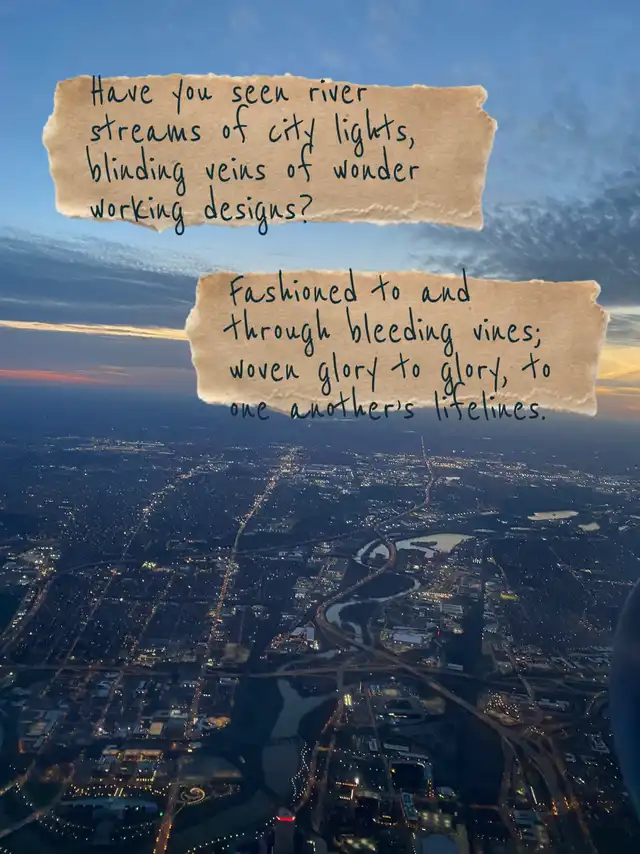 Have you seen river
streams of city lights,
blinding veins of wonder
working designs?
Fashioned to and
through bleeding vines;
woven glory to glory, to
one another's lifelines.